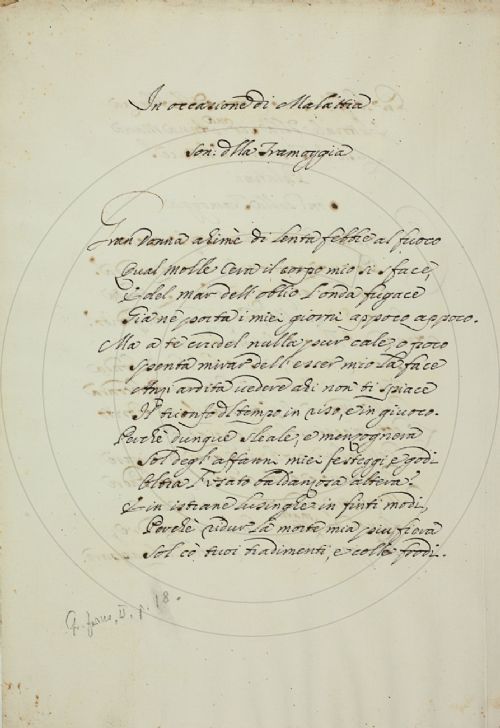 In occasione di Malattia
Son: della Tramoggia
Gran donna ahimè di lenta febbre al fuoco
Qual molle Cera il corpo mio si sface,
E del mar dell'oblio l'onda fugace
Già ne porta i miei giorni appoco appoco.
Ma a te cui del nulla pur cale, o poco
Spenta mirar dell'esser mio la face
Anzi ardita vedere ahi non ti spiace
Il trionfo del tempo in riso, e in giuoco.
Perche dunque sleale, e menzognera
Sol degl'affanni miei festeggi, e godi
Oltra l'usato baldanzosa altera?
E in istrane lusinghe in finti modi,
Perchè ridur la morte mia piu fiera
Sol co tuoi tradimenti, e colle frodi.
II, p. 18.